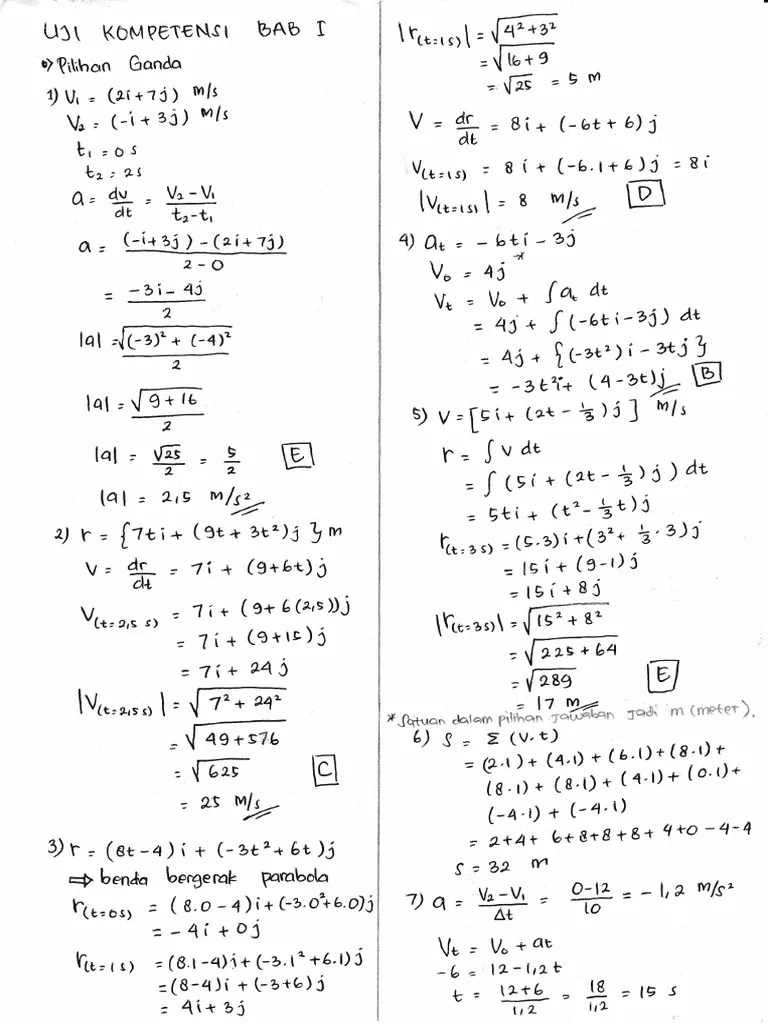 UJI KOMPETENSI BAB I
Pilihan Ganda
1) V₁ = (2i+7j) m/s
V₂ = (-i+3j) m/s
t₁ = 0 s
t₂ = 2s
a = dv/dt = V₂-V₁/t₂-t₁
a = (-i+3j)-(2i+7j)/2-0
= -3i-4j/2
|a| = √(-3)²+(-4)²/2
|a| = √9+16/2
|a| = √25/2 = 5/2 E
|a| = 2,5 m/s²
2) r = {7ti+(9t+3t²)j}m
V = dr/dt = 7i+(9+6t)j
V(t=2,5 s) = 7i+(9+6(2,5))j
= 7i+(9+15)j
= 7i+24j
|V(t=2,5s)| = √7²+24²
= √49+576
= √625 C
= 25 m/s
3) r = (8t-4)i+(-3t²+6t)j
⇒ benda bergerak parabola
r(t=0s) = (8.0-4)i+(-3.0²+6.0)j
= -4i+0j
r(t=1s) = (8.1-4)i+(-3.1²+6.1)j
= (8-4)i+(-3+6)j
= 4i+3j
|r(t=1s)| = √4²+3²
= √16+9
= √25 = 5 m
V = dr/dt = 8i+(-6t+6)j
V(t=1s) = 8i+(-6.1+6)j = 8i
|V(t=1s)| = 8 m/s D
4) at = -6ti-3j
V₀ = 4j*
Vt = V₀+∫at dt
= 4j+∫(-6ti-3j) dt
= 4j+{(-3t²)i-3tj}
= -3t²i+(4-3t)j B
5) V = [5i+(2t-1/3)j] m/s
r = ∫V dt
= ∫(5i+(2t-1/3)j) dt
= 5ti+(t²-1/3t)j
r(t=3s) = (5.3)i+(3²+1/3.3)j
= 15i+(9-1)j
= 15i+8j
|r(t=3s)| = √15²+8²
= √225+64
= √289 E
= 17 m
*Satuan dalam pilihan jawaban jadi m (meter).
6) S = Σ(V.t)
= (2.1)+(4.1)+(6.1)+(8.1)+
(8.1)+(8.1)+(4.1)+(0.1)+
(-4.1)+(-4.1)
= 2+4+6+8+8+8+4+0-4-4
s = 32 m
7) a = V₂-V₁/Δt = 0-12/10 = -1,2 m/s²
Vt = V₀+at
-6 = 12-1,2t
t = 12+6/1,2 = 18/1,2 = 15 s